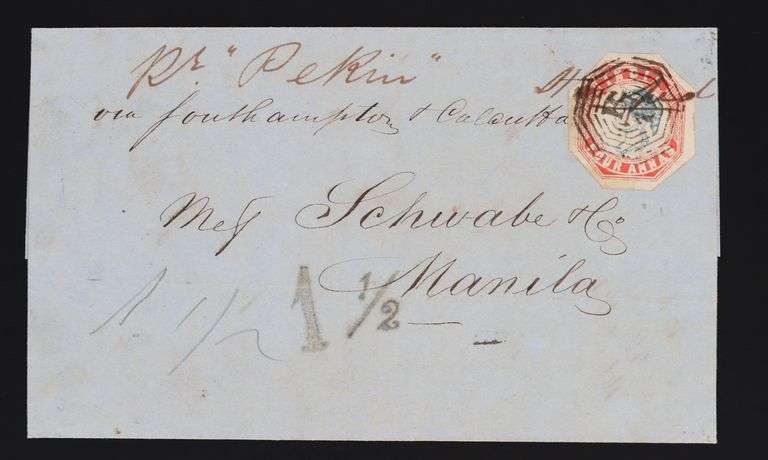 pr. "Pekin"
via Southampton & Calcutta
FOUR ANNAS
Mess Schwabe & Co
Manila
1 1/2
1 1/2